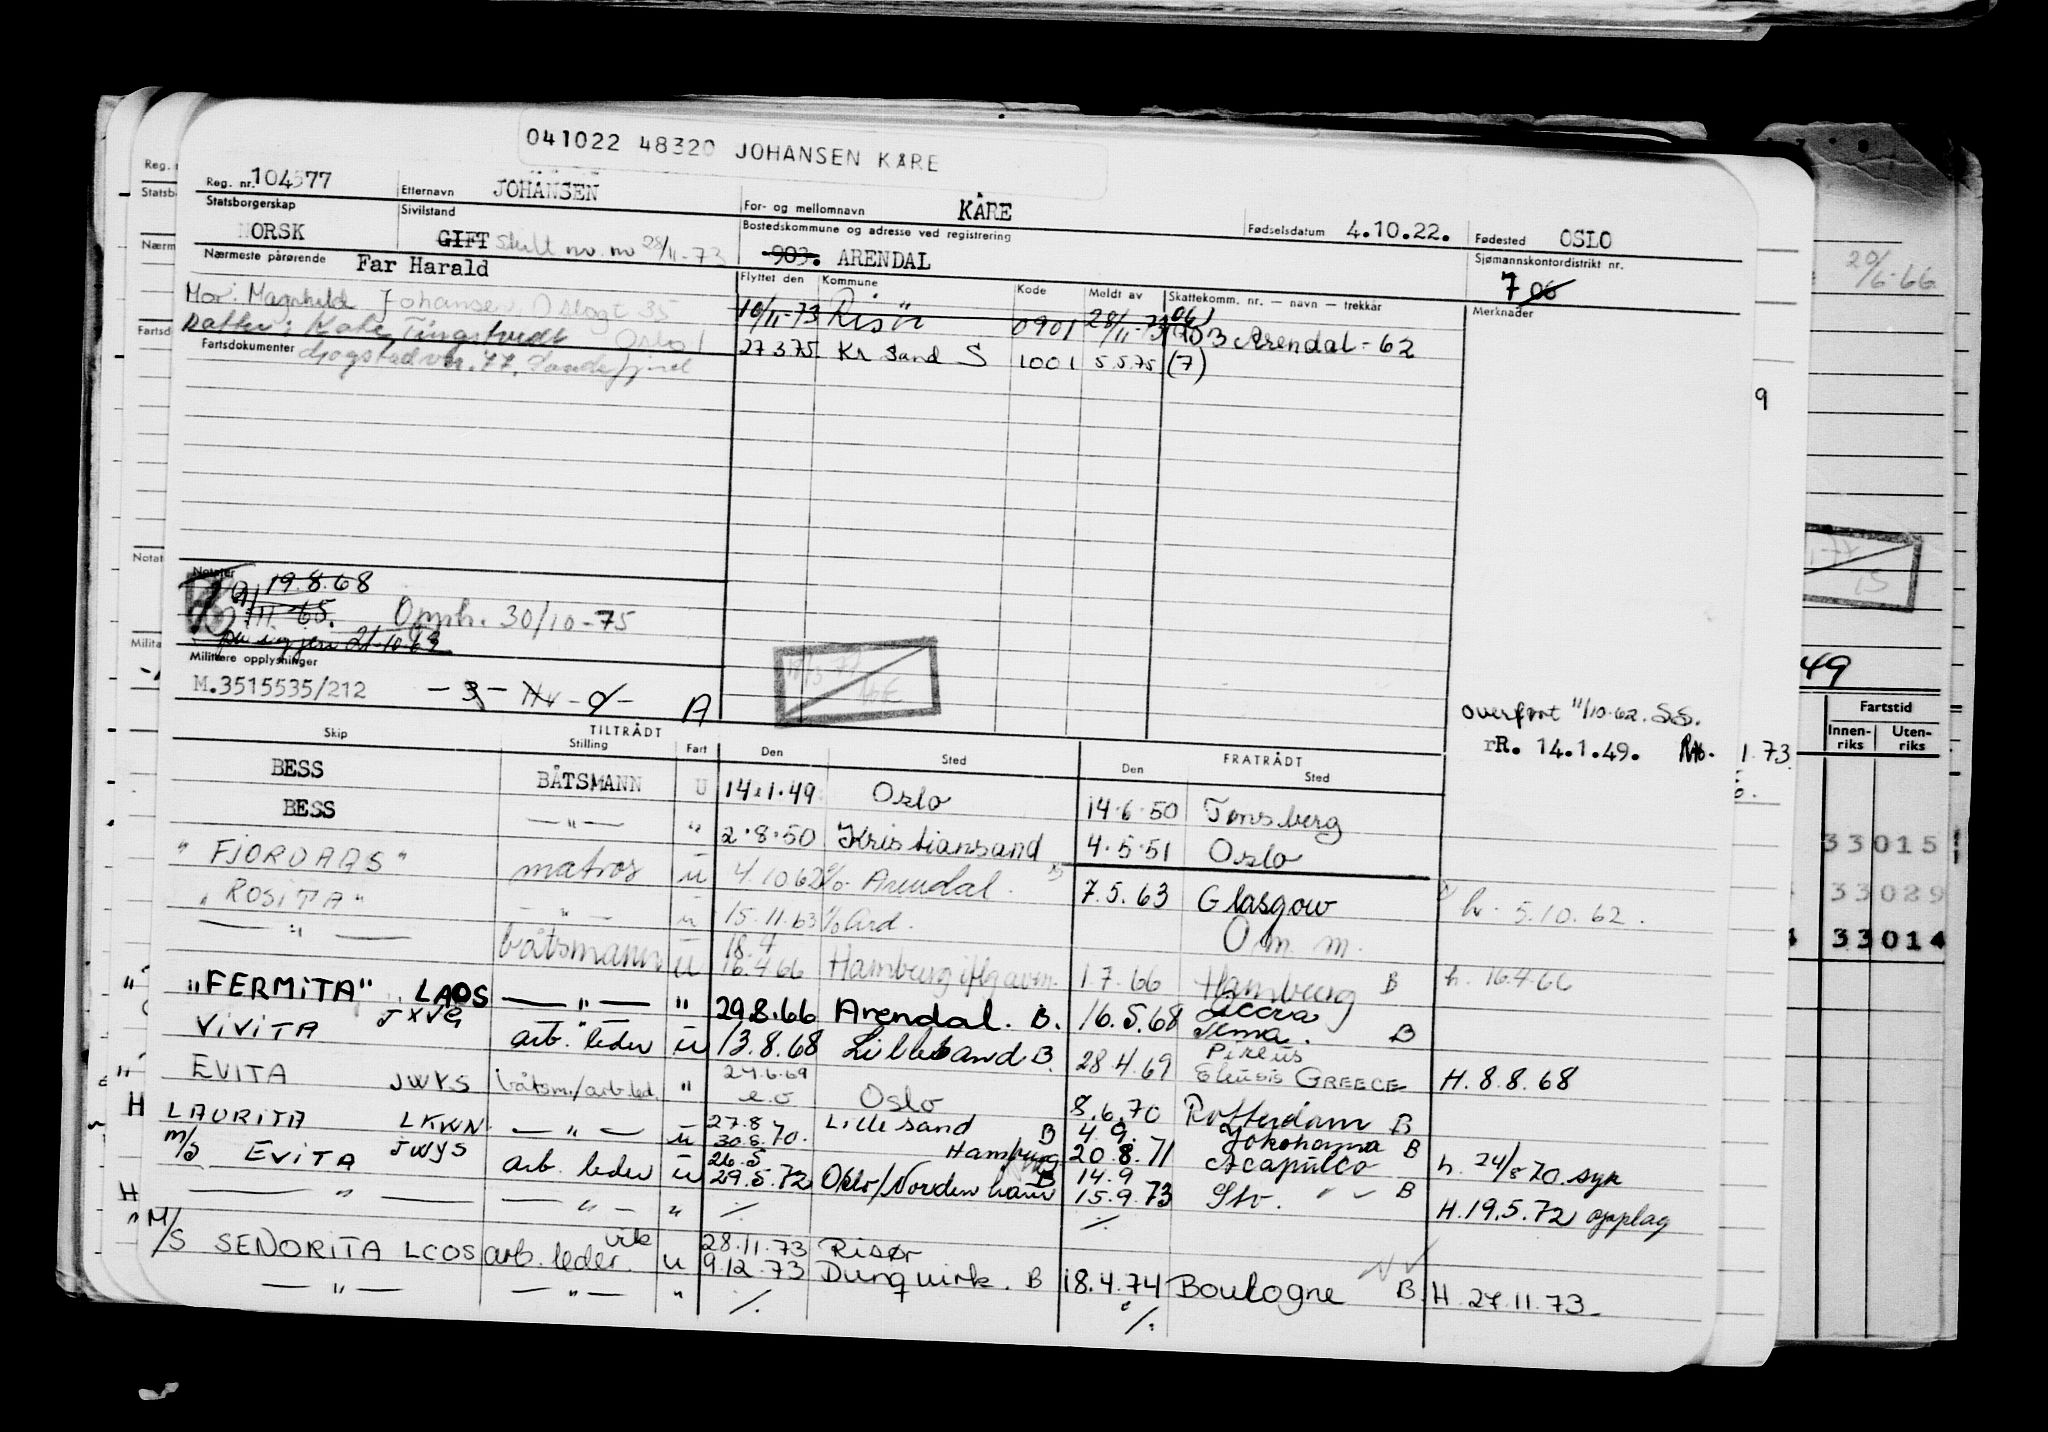 041022 48320 JOHANSEN KÅRE
Reg. nr. 104577 Etternavn JOHANSEN For- og mellomnavn KÅRE Fødselsdatum 4.10.22. Fødested OSLO
Statsborgerskap NORSK Sivilstand GIFT 28/11-73 Bostedskommune og adresse ved registrering 903. ARENDAL Sjømannskontordistrikt nr. 7 06
Nærmeste pårørende Far Harald Flyttet den Kommune Kode Meldt av Skattekomm. nr. — navn — trekkår Merknader
Mor: Magnhild Johansen, Oslogt 35 Oslo 1 16/11-73 Risør 0901 28/11-73 Arendal-62
Datter: Kate Tingstvedt 27375 Kr sand S 1001 5.5.75 (7)
Fartsdokumenter 77, Sandefjord
Notater
19.8.68
65. Opph. 30/10-75
21.10.63
Militære opplysninger
M.3515535/212 A
overført 11/10.62. SS.
rR. 14.1.49.
TILTRÅDT FRATRÅDT
Skip Stilling Fart Den Sted Den Sted
BESS BÅTSMANN U 14.1.49. Oslo 14.6.50 Tønsberg
BESS — " — " 2.8.50 Kristiansand 4.5.51 Oslo
"FJORDAAS" matros u 4.10.62 Arendal. 7.5.63 Glasgow h. 5.10.62.
"ROSITA" — " — u 15.11.63 Ard. O m. m.
— " — båtsmann u 18.4 16.4.66 Hamburg 1.7.66 Hamburg B h. 16.4.66
"FERMITA" LAOS — " — " 29.8.66 Arendal. B. 16.5.68 Accra Tema. B
VIVITA JXVG arb. leder u 13.8.68 Lillesand B. 28.4.69 Pireus Eleusis GREECE H. 8.8.68
EVITA JWYS båtsm./arb.led. " 24.6.69 e.o Oslo 8.6.70 Rotterdam B
H LAURITA LKWN — " — u 27.8 30.8.70. Lillesand Hamburg B 4.9. 20.8.71 Yokohama Acapulco B h. 24/8 70. syk
m/s EVITA JWYS arb. leder u 26.5 29.5.72 Oslo/Nordenham B 14.9 15.9.73 Stv. " — B H. 19.5.72 opplag
H — " — — " — " ./. ./.
M/S SENORITA LCOS arb. leder vik u 28.11.73 9.12.73 Risør Dunquirk. B 18.4.74 Boulogne B H. 27.11.73
— " — — " — " ./. ./.
20/6-66
9
49
Fartstid
Innenriks Utenriks
1.73
33015
33029
33014